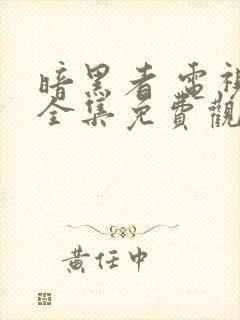 暗黑者 電視
全集免費觀
黃任中